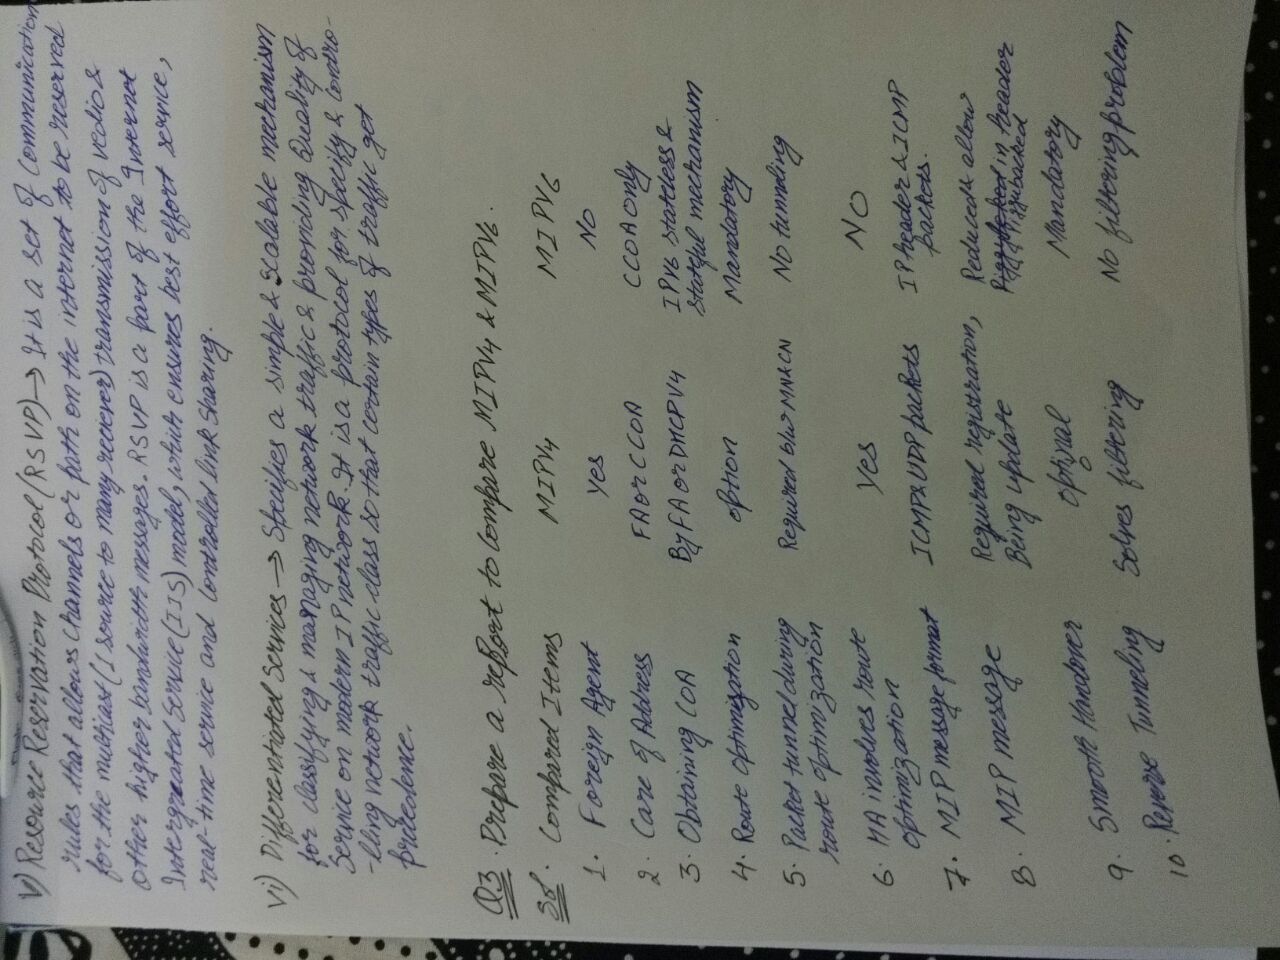 v) Resource Reservation Protocol (RSVP) → It is a set of communication
rules that allows channels or path on the internet to be reserved
for the multicast (1 source to many reciever) transmission of vedio &
other higher bandwidth messages. RSVP is a part of the Internet
Intergreated Service (IIS) model, which ensures best effort service,
real-time service and controlled link sharing.
vi) Differentiated Services → Specifies a simple & scalable mechanism
for classifying & managing network traffic & providing Quality of
Service on modern IP network. It is a protocol for specify & contro-
-lling network traffic class so that certain types of traffic get
precedence.
Q3. Prepare a report to compare MIPV4 & MIPV6.
Sol. Compared Items MIPV4 MIPV6
1. Foreign Agent Yes No
2. Care of Address FA or CCOA CCOA only
3. Obtaining COA By FA or DHCPV4 IPV6 stateless &
stateful mechanism
4. Route Optimization option Mandatory
5. Packet tunnel during Required b/w MN & CN No tunneling
route optimization
6. HA involves route Yes NO
optimization
7. MIP message format ICMP & UDP packets IP header & ICMP
packets.
8. MIP message Required registration, Reduced & allow
Being update in header
Piggybacked
9. Smooth Handover optinal Mandatory
10. Reverse Tunneling Solves filtering No filtering problem